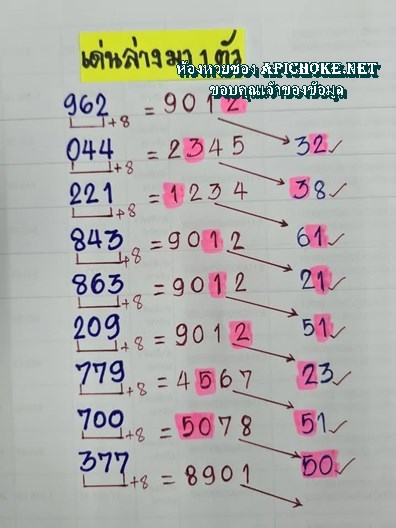 เด่นล่างมา 1 ตัว
ห้องหวยของ APICHOKE.NET
ขอบคุณเจ้าของข้อมูล
962 +8 = 9012
044 +8 = 2345 32 ✓
221 +8 = 1234 38 ✓
843 +8 = 9012 61 ✓
863 +8 = 9012 21 ✓
209 +8 = 9012 51 ✓
779 +8 = 4567 23 ✓
700 +8 = 5078 51 ✓
377 +8 = 8901 50 ✓